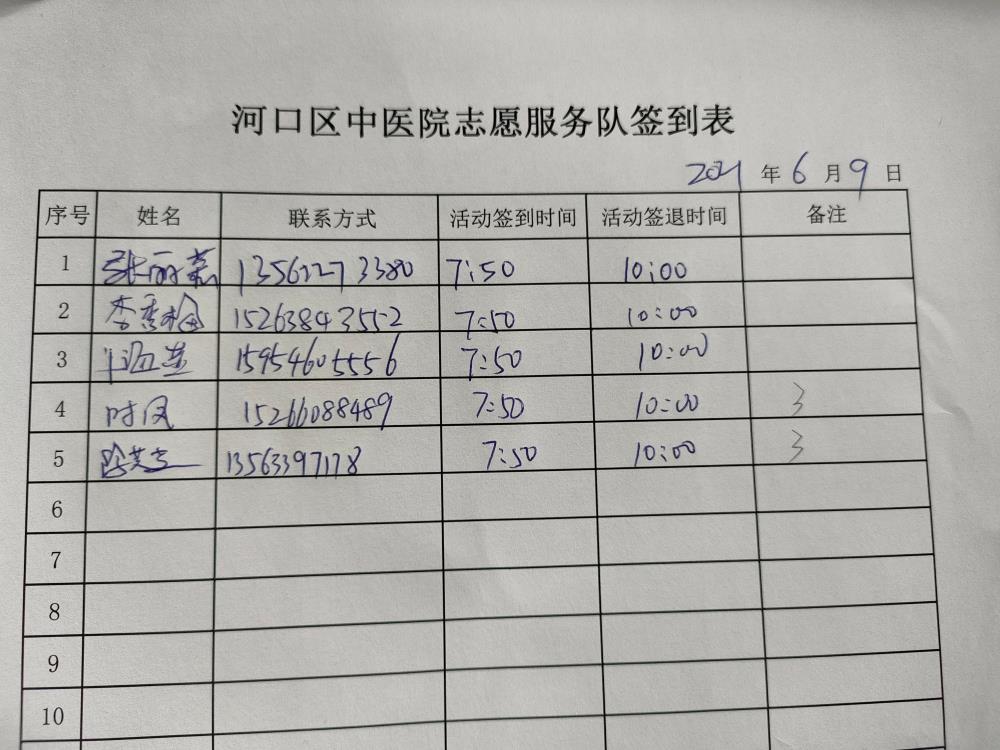 河口区中医院志愿服务队签到表
2021年6月9日
序号 姓名 联系方式 活动签到时间 活动签退时间 备注
1 张丽 7:50 10:00
2 李秀梅 15263843552 7:50 10:00
3 15954605556 7:50 10:00
4 时风 15266088489 7:50 10:00 3
5 13563397178 7:50 10:00 3
6
7
8
9
10